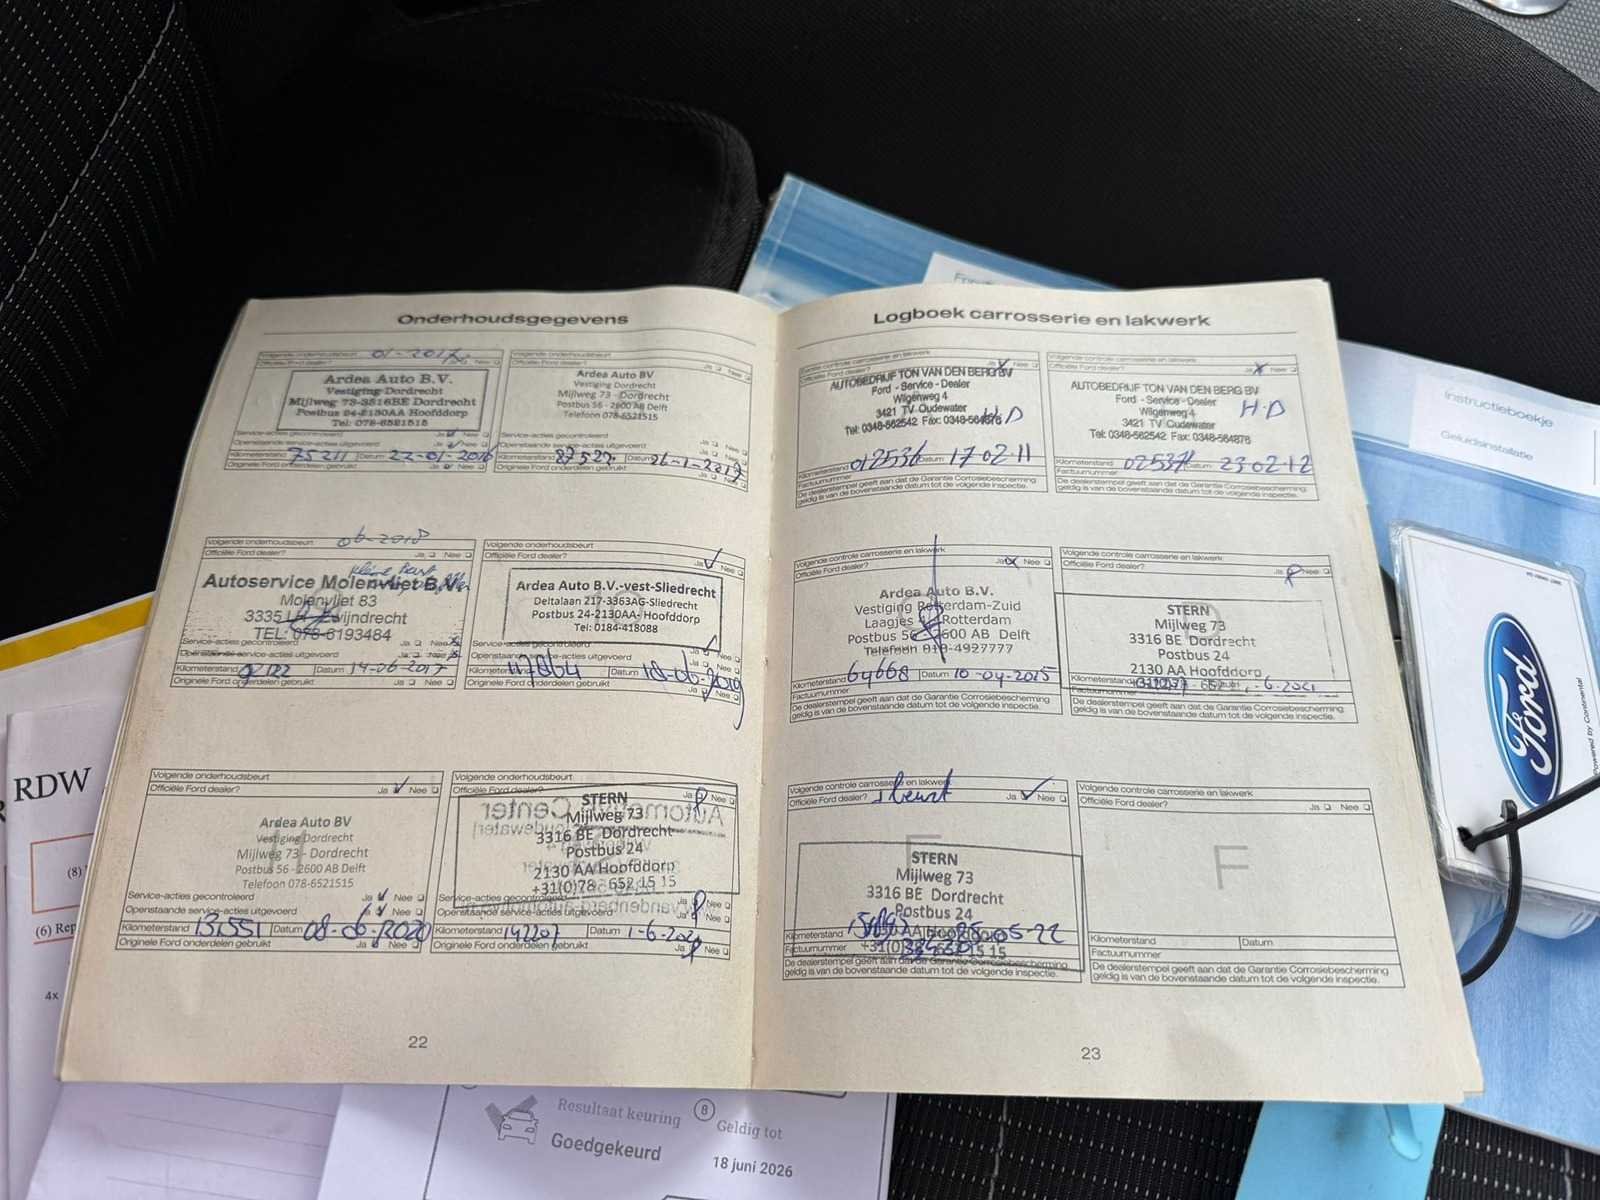 Onderhoudsgegevens
Volgende onderhoudsbeurt 01-2017
Officiële Ford dealer? Ja Nee
Ardea Auto B.V.
Vestiging Dordrecht
Mijlweg 73-3316BE Dordrecht
Postbus 24-2130AA Hoofddorp
Tel: 078-6521515
Service-acties gecontroleerd Ja Nee
Openstaande service-acties uitgevoerd Ja Nee
Kilometerstand 75211 Datum 22-01-2016
Originele Ford onderdelen gebruikt Ja Nee
Volgende onderhoudsbeurt
Officiële Ford dealer? Ja Nee
Ardea Auto BV
Vestiging Dordrecht
Mijlweg 73 - Dordrecht
Postbus 56 - 2600 AB Delft
Telefoon 078-6521515
Service-acties gecontroleerd Ja Nee
Openstaande service-acties uitgevoerd Ja Nee
Kilometerstand 87527 Datum
Originele Ford onderdelen gebruikt Ja Nee
Volgende onderhoudsbeurt 06-2018
Officiële Ford dealer? Ja Nee
Autoservice Molenvliet B.V.
Molenvliet 83
TEL: 078-6193484
Service-acties gecontroleerd Ja Nee
Openstaande service-acties uitgevoerd Ja Nee
Kilometerstand Datum 14-06-2017
Originele Ford onderdelen gebruikt Ja Nee
Volgende onderhoudsbeurt
Officiële Ford dealer? Ja Nee
Ardea Auto B.V.-vest-Sliedrecht
Deltalaan 217-3363AG-Sliedrecht
Postbus 24-2130AA- Hoofddorp
Tel: 0184-418088
Service-acties gecontroleerd Ja Nee
Openstaande service-acties uitgevoerd Ja Nee
Kilometerstand 117864 Datum 18-06-2019
Originele Ford onderdelen gebruikt Ja Nee
Volgende onderhoudsbeurt
Officiële Ford dealer? Ja Nee
Ardea Auto BV
Vestiging Dordrecht
Mijlweg 73 - Dordrecht
Postbus 56 - 2600 AB Delft
Telefoon 078-6521515
Service-acties gecontroleerd Ja Nee
Openstaande service-acties uitgevoerd Ja Nee
Kilometerstand 131551 Datum 08-06-2020
Originele Ford onderdelen gebruikt Ja Nee
Volgende onderhoudsbeurt
Officiële Ford dealer? Ja Nee
STERN
Mijlweg 73
3316 BE Dordrecht
Postbus 24
2130 AA Hoofddorp
+31(0)78 - 652 15 15
Service-acties gecontroleerd Ja Nee
Openstaande service-acties uitgevoerd Ja Nee
Kilometerstand 142207 Datum 1-6-2021
Originele Ford onderdelen gebruikt Ja Nee
22
Logboek carrosserie en lakwerk
Eerste controle carrosserie en lakwerk
Officiële Ford dealer? Ja Nee
AUTOBEDRIJF TON VAN DEN BERG BV
Ford - Service - Dealer
Wilgenweg 4
3421 TV Oudewater
Tel: 0348-562542 Fax: 0348-564876
H.D
Kilometerstand 012536 Datum 17 02-11
Factuurnummer
De dealerstempel geeft aan dat de Garantie Corrosiebescherming
geldig is van de bovenstaande datum tot de volgende inspectie.
Volgende controle carrosserie en lakwerk
Officiële Ford dealer? Ja Nee
AUTOBEDRIJF TON VAN DEN BERG BV
Ford - Service - Dealer
Wilgenweg 4
3421 TV Oudewater
Tel: 0348-562542 Fax: 0348-564876
H.D
Kilometerstand Datum 23 02-12
Factuurnummer
De dealerstempel geeft aan dat de Garantie Corrosiebescherming
geldig is van bovenstaande datum tot de volgende inspectie.
Volgende controle carrosserie en lakwerk
Officiële Ford dealer? Ja Nee
Ardea Auto B.V.
Vestiging Rotterdam-Zuid
Laagjes Rotterdam
Postbus 56 2600 AB Delft
Telefoon 010-4927777
Kilometerstand 64668 Datum 10-04-2015
Factuurnummer
De dealerstempel geeft aan dat de Garantie Corrosiebescherming
geldig is van de bovenstaande datum tot de volgende inspectie.
Volgende controle carrosserie en lakwerk
Officiële Ford dealer? Ja Nee
STERN
Mijlweg 73
3316 BE Dordrecht
Postbus 24
2130 AA Hoofddorp
Kilometerstand -6-2021
Factuurnummer
De dealerstempel geeft aan dat de Garantie Corrosiebescherming
geldig is van de bovenstaande datum tot de volgende inspectie.
Volgende controle carrosserie en lakwerk
Officiële Ford dealer? beurt Ja Nee
STERN
Mijlweg 73
3316 BE Dordrecht
Postbus 24
Kilometerstand AA Hoofddorp 05-22
Factuurnummer +31(0) 15 15
De dealerstempel geeft aan dat de Garantie Corrosiebescherming
geldig is van de bovenstaande datum tot de volgende inspectie.
Volgende controle carrosserie en lakwerk
Officiële Ford dealer? Ja Nee
F
Kilometerstand Datum
Factuurnummer
De dealerstempel geeft aan dat de Garantie Corrosiebescherming
geldig is van de bovenstaande datum tot de volgende inspectie.
23
Instructieboekje
Geluidsinstallatie
Ford
Powered by Continental
RDW
(8)
(6) Rep
4x
Resultaat keuring
Goedgekeurd
8
Geldig tot
18 juni 2026